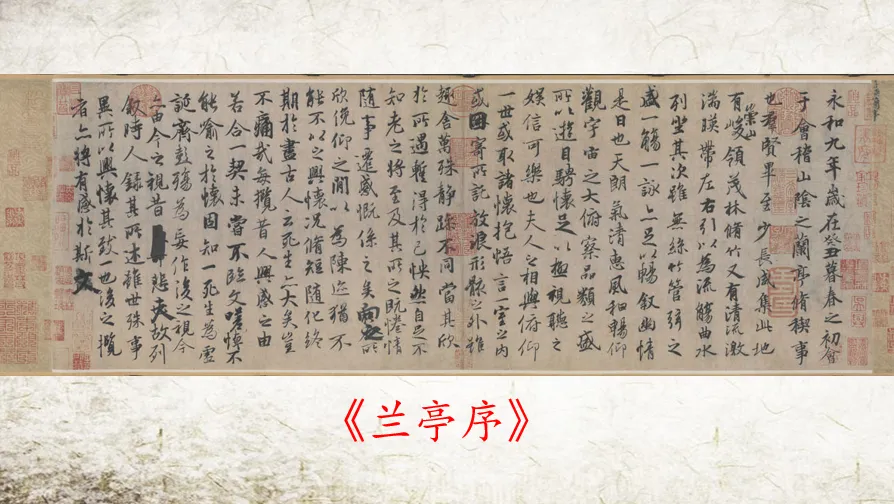 永和九年歲在癸丑暮春之初會
于會稽山陰之蘭亭脩稧事
也羣賢畢至少長咸集此地
有崇山峻領茂林脩竹又有清流激
湍暎帶左右引以為流觴曲水
列坐其次雖無絲竹管弦之
盛一觴一詠亦足以暢叙幽情
是日也天朗氣清惠風和暢仰
觀宇宙之大俯察品類之盛
所以遊目騁懷足以極視聽之
娛信可樂也夫人之相與俯仰
一世或取諸懷抱悟言一室之內
或因寄所託放浪形骸之外雖
趣舍萬殊靜躁不同當其欣
於所遇蹔得於己怏然自足不
知老之將至及其所之既惓情
隨事遷感慨係之矣向之所
欣俛仰之閒以為陳迹猶不
能不以之興懷況脩短隨化終
期於盡古人云死生亦大矣豈
不痛哉每攬昔人興感之由
若合一契未嘗不臨文嗟悼不
能喻之於懷固知一死生為虛
誕齊彭殤為妄作後之視今
亦由今之視昔悲夫故列
叙時人錄其所述雖世殊事
異所以興懷其致一也後之攬
者亦將有感於斯文
《兰亭序》